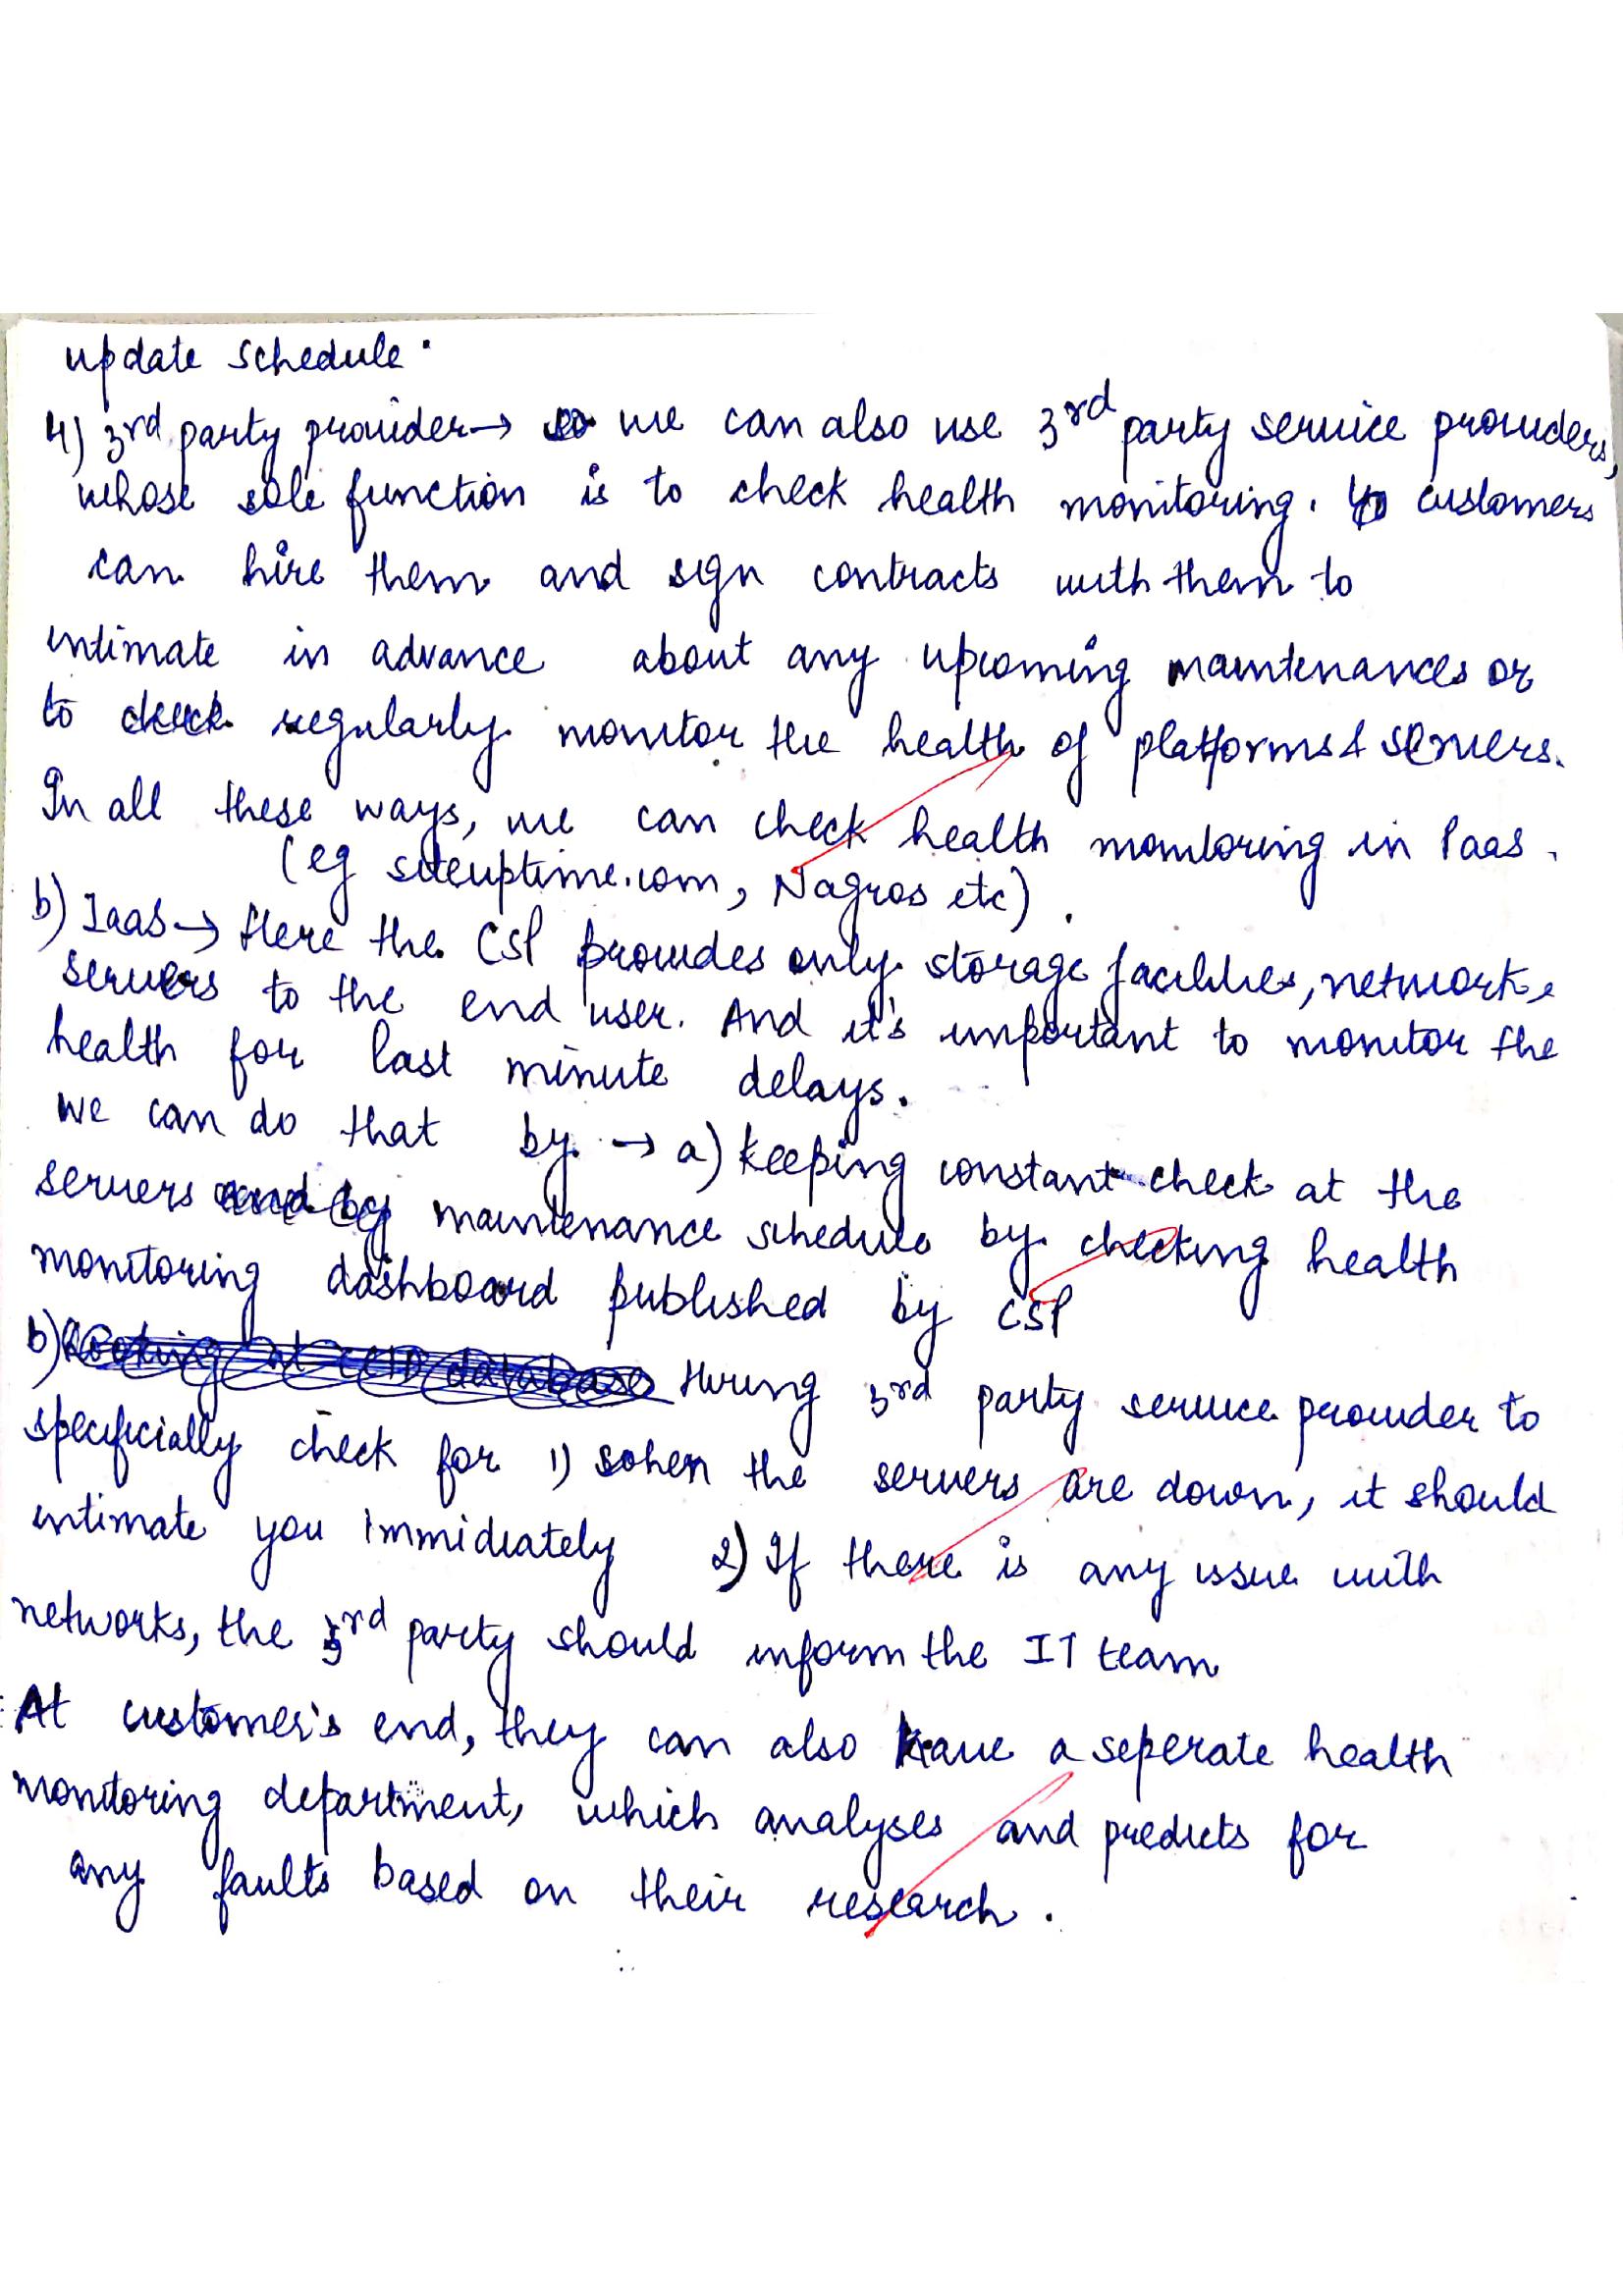 update schedule.
4) 3rd party provider → so we can also use 3rd party service providers,
whose sole function is to check health monitoring. customers
can hire them and sign contracts with them to
intimate in advance about any upcoming maintenances or
to check regularly monitor the health of platforms & servers.
In all these ways, we can check health monitoring in Paas.
(eg siteuptime.com, Nagros etc).
b) Iaas → Here the CSP provides only storage facilities, network,
servers to the end user. And it's important to monitor the
health for last minute delays.
we can do that by → a) keeping constant check at the
servers and by maintenance schedule by checking health
monitoring dashboard published by CSP
b) Looking at database Hiring 3rd party service provider to
specificially check for 1) when the servers are down, it should
intimate you immidiately 2) If there is any issue with
networks, the 3rd party should inform the IT team
At customer's end, they can also have a seperate health
monitoring department, which analyses and predicts for
any faults based on their research.